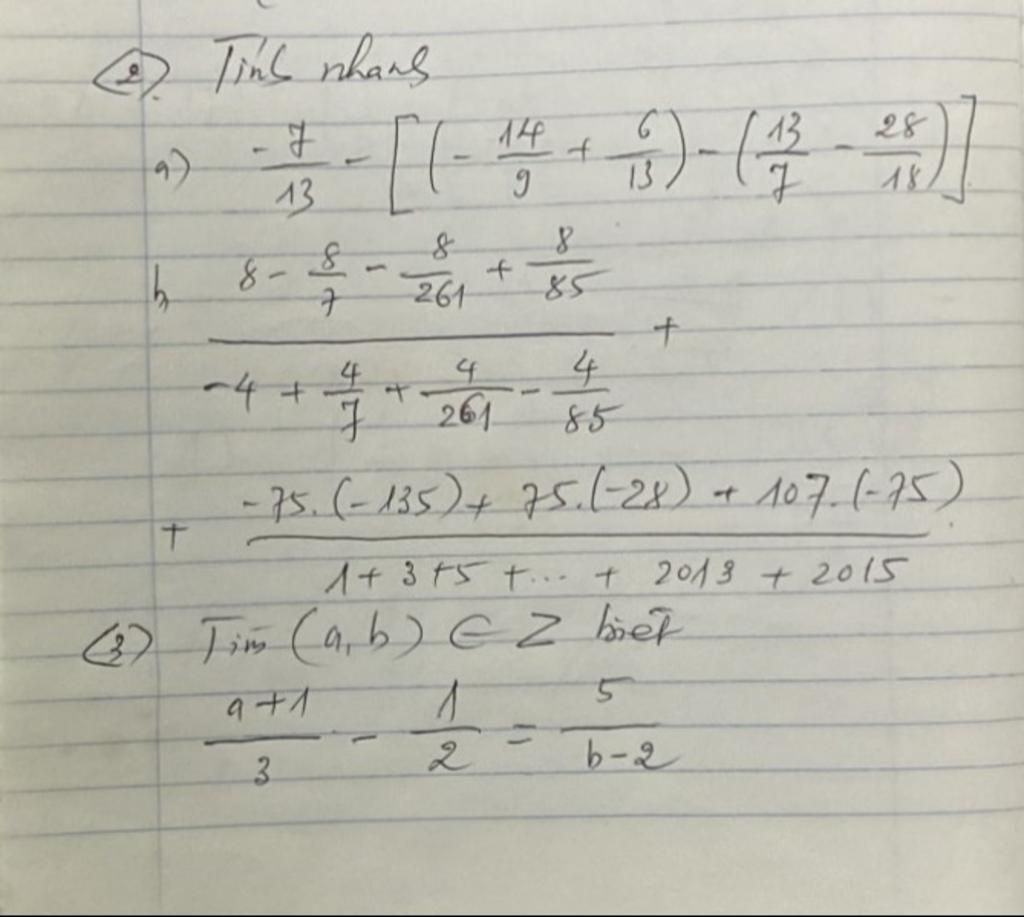 ② Tính nhanh
a) -7/13 - [(-14/9 + 6/13) - (13/7 - 28/18)]
b, (8 - 8/7 - 8/261 + 8/85)/(-4 + 4/7 + 4/261 - 4/85) +
+ (-75.(-135) + 75.(-28) + 107.(-75))/(1 + 3 + 5 + ... + 2013 + 2015)
③ Tìm (a, b) ∈ Z biết
(a + 1)/3 - 1/2 = 5/(b - 2)